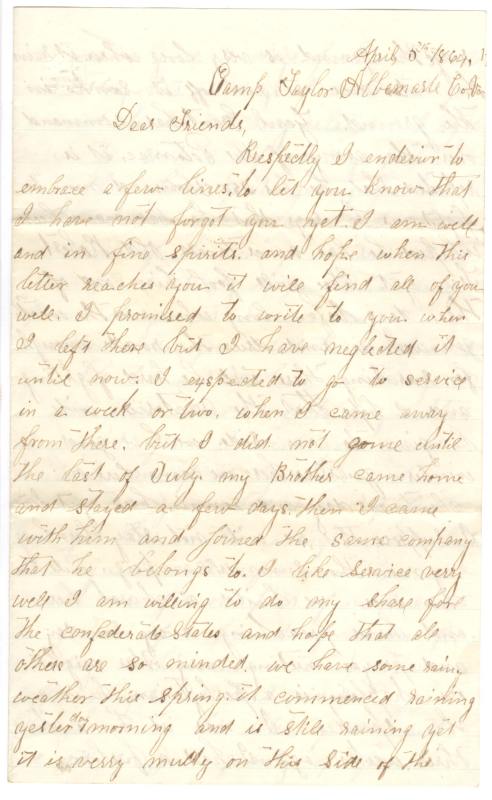 April 5th 1864,
Camp Taylor Albemarle Co Va
Dear Friends,
Respectly I endevir to
embrace a few lines, to let you know that
I have not forgot you yet. I am well
and in fine spirits. and hope when this
letter reaches you it will find all of you
well. I promised to write to you when
I left there but I have neglected it
until now. I expected to go to service
in a week or two. when I came away
from there. but I did not gome until
the last of July. my Brother came home
and stayed a few days. then I came
with him and joined the same company
that he belongs to. I like service very
well I am willing to do my share fore
the confederate States and hope that all
others are so minded. we have some rain
weather this spring. it commenced raining
yesterday morning and is still raining yet
it is verry muddy on this side of the